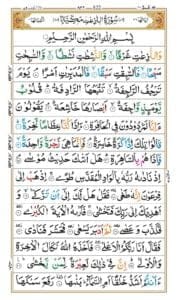 سُوْرَةُ النّٰزِعٰتِ مَكِّيَّةٌ
بِسْمِ اللّٰهِ الرَّحْمٰنِ الرَّحِيْمِ
وَالنّٰزِعٰتِ غَرْقًا وَّالنّٰشِطٰتِ نَشْطًا وَّالسّٰبِحٰتِ
سَبْحًا فَالسّٰبِقٰتِ سَبْقًا فَالْمُدَبِّرٰتِ اَمْرًا يَوْمَ
تَرْجُفُ الرَّاجِفَةُ تَتْبَعُهَا الرَّادِفَةُ قُلُوْبٌ
يَّوْمَئِذٍ وَّاجِفَةٌ اَبْصَارُهَا خَاشِعَةٌ يَقُوْلُوْنَ
ءَاِنَّا لَمَرْدُوْدُوْنَ فِي الْحَافِرَةِ ءَاِذَا كُنَّا عِظَامًا
نَّخِرَةً قَالُوْا تِلْكَ اِذًا كَرَّةٌ خَاسِرَةٌ فَاِنَّمَا هِيَ زَجْرَةٌ وَّاحِدَةٌ
فَاِذَا هُمْ بِالسَّاهِرَةِ هَلْ اَتٰىكَ حَدِيْثُ مُوْسٰى
اِذْ نَادٰىهُ رَبُّهٗ بِالْوَادِ الْمُقَدَّسِ طُوًى اِذْهَبْ اِلٰى
فِرْعَوْنَ اِنَّهٗ طَغٰى فَقُلْ هَلْ لَّكَ اِلٰٓى اَنْ تَزَكّٰى وَ
اَهْدِيَكَ اِلٰى رَبِّكَ فَتَخْشٰى فَاَرٰىهُ الْاٰيَةَ الْكُبْرٰى
فَكَذَّبَ وَعَصٰى ثُمَّ اَدْبَرَ يَسْعٰى فَحَشَرَ فَنَادٰى
فَقَالَ اَنَا رَبُّكُمُ الْاَعْلٰى فَاَخَذَهُ اللّٰهُ نَكَالَ الْاٰخِرَةِ
وَالْاُوْلٰى اِنَّ فِيْ ذٰلِكَ لَعِبْرَةً لِّمَنْ يَّخْشٰى
ءَاَنْتُمْ اَشَدُّ خَلْقًا اَمِ السَّمَآءُ بَنٰىهَا رَفَعَ سَمْكَهَا